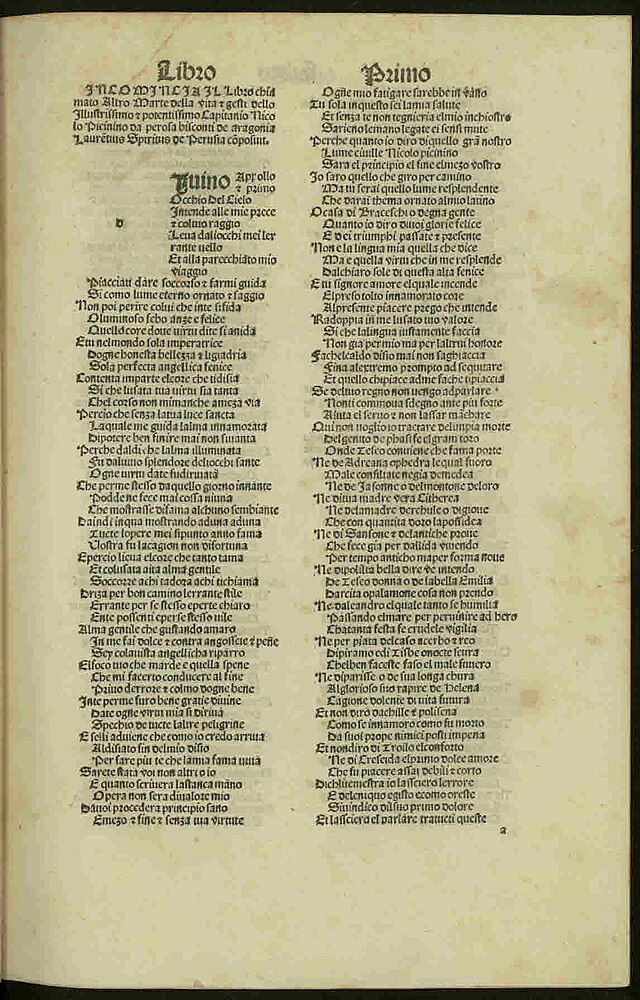 Libro
INCOMINCIA IL Libro chia
mato Altro Marte della vita & gesti dello
Illustrissimo & potentissimo Capitanio Nico
lo Picinino da perosa bisconti de aragonia
Laurētius Spiritus de Perusia cōposuit.
Iuino Appollo
& primo
Occhio Del Cielo
Intende alle mie prece
& coluto raggio
d
Leua daliocchi mei ler
rante uello
Et alla parecchiato mio
viaggio
Piacciati dare soccorso & farmi guida
Si como lume eterno ornato & saggio
Non poi perire colui che inte sifida
O luminoso febo anze felice
Quello core doue uirtu dite si anida
Etu nelmondo sola imperatrice
Dogne honesta bellezza & ligiadria
Sola perfecta angellica fenice
Contenta imparte elcore che tidisia
Si che lusata tua uirtu sia tanta
Chel corso non mimanche ameza uia
Percio che senza latua luce sancta
Laquale me guida lalma innamorata
Dipotere ben finire mai non siuanta
Perche daldi che lalma illuminata
Fu daluiuo splendore deliocchi sante
Ogne uirtu date fudiriuata
Che perme stesso daquello giorno innante
Podde ne fece mai cossa niuna
Che mostrasse difama alchuno sembiante
Daindi inqua mostrando aduna aduna
Tucte lopere mei sipunto anno fama
Vostra fu lacagion non disortuna
Epercio lieua elcore che tanto tama
Et colusata aita alma gentile
Soccorre achi tadora achi tichiama
Driza per bon camino lerrante stile
Errante per se stesso eperte chiaro
Ente possenti eperse stesso uile
Alma gentile che gustando amaro
In me fai dolce & contra angossie & peñe
Sey colauista angellicha riparro
Elfoco tuo che marde e quella spene
Che mi facerto conducere al fine
Priuo derrore & colmo dogne bene
Inte perme furo bene gratie diuine
Date ogne uirtu mia si diriua
Specchio de tucte laltre peligrine
E selli aduiene che como io credo arriua
Aldisiato fin delmio disio
Per fare piu te che lanima fama uiua
Sarete stata uoi non altri o io
E quanto scriuera lastanca mano
Opera non sera diualore mio
Dauoi procedera principio sano
E mezo & fine & senza tua uirtute
Primo
Ogne mio fatigare sarebbe in vano
Tu sola in questo sei lamia salute
Et senza te non tegnieria elmio inchiostro
Sarieno lemano legate ei sensi mute
Perche quanto io diro diquello grā nostro
Lume ciuille Nicolo picinino
Sara el principio el fine elmezo vostro
Io saro quello che giro per camino
Ma tu serai quello lume resplendente
Che darai thema ornato almio latino
O casa di Braceschi o degna gente
Quanto io diro diuoi glorie felice
E dei triumphi passate & presente
Non e la lingua mia quella che dice
Ma e quella virtu che in me resplende
Dalchiaro sole di questa alta fenice
Etui signore amore elquale incende
El presto lto innamorato core
Al presente piacere prego che intende
Radoppia in me lusato tuo valore
Si che lalingua iustamente faccia
Non gia per mio ma per laltrui honore
Fachelcaldo disio mai non saghiaccia
Fina alextremo prompto ad sequitare
Et quello chipiace adme fache tipiaccia
Se deluio regno non uengo adparlare
Nonti commoua sdegno ante piu forte
Aiuta el seruo & non lassar māchare
Qui non uoglio io tractare delimpia morte
Del genito de phasife el gram toro
Onde Teseo conuiene che fama porte
Ne de Adreana ophedra lequal fuoro
Male consiliate negia demedea
Ne de Jasonne o delmontone deloro
Ne diuia madre vera Citherea
Ne delamadre derchule o digioue
Che con quantita doro lapossidea
Ne di Sansone & delantiche proue
Che fece gia per dallida viuendo
Per tempo anticho maper forma noue
Ne dipolita bella dire ve intendo
De Teseo donna o de labella Emilia
Darcita opalamone cosa non prendo
Ne daleandro elquale tanto se humilia
Passando elmare per peruenire ad hero
Chatanta festa fe crudele vigilia
Ne per piata delcaso acerbo & reo
Dipiramo edi Tisbe onocte scura
Chelben faceste faso el male fuuero
Ne diparisse o de sua longa chura
Alglorioso suo rapire de Helena
Cagione dolente di uita futura
Et non diro dachille & polisena
Como se innamoro como fu morto
Da suoi prope nimici posti impena
Et nondiro di Troilo elconforto
Ne di Creseida elprimo dolce amore
Che fu piacere assai debili & corto
Dichliuemestra io lassciero lerrore
E deleniquo egisto ecomo oreste
Siuindico dilsuo primo dolore
Et lassciero el parlare tratucti queste
a